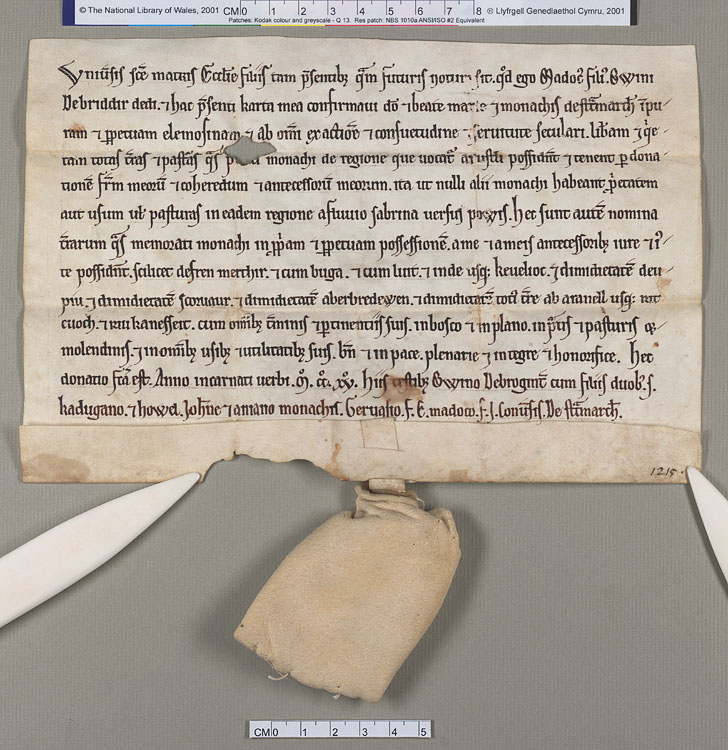 © The National Library of Wales, 2001 CM 0 1 2 3 4 5 6 7 8 ® Llyfrgell Genedlaethol Cymru, 2001
Patches: Kodak colour and greyscale - Q 13. Res patch: NBS 1010a ANSI/ISO #2 Equivalent
Vniũſis ſcẽ matris Eccłie filiis tam p̃ſentibꝫ q̃m futuris notum ſit. qd̃ ego Madoc̃ filiꝰ. Owini
Debriddir dedi. ⁊ hac p̃ſenti karta mea confirmaui dõ ⁊ beate marie ⁊ monachis deſt̃march̃ ĩpu
ram ⁊ ꝑpetuam elemoſinam ⁊ ab om̃i exactiõe ⁊ conſuetudine ⁊ ſeruitute ſeculari. lib̃am ⁊ q̃e
tam totas t̃ras ⁊ paſt̃as q̃s monachi de regione que uocat̃ aruſtli poſſidñt ⁊ tenent ꝑ dona
tionẽ fr̃m meoꝝ ⁊ coheredum ⁊ anteceſſoꝝ meorum. ita ut nulli alii monachi habeant p̃etatem
aut uſum uł paſturas in eadem regione a fluuio ſabrina uerſus powis. Hec ſunt autẽ nomina
t̃rarum q̃s memorati monachi in ꝓp̃am ⁊ ꝑpetuam poſſeſſionẽ. a me ⁊ a meis anteceſſoribꝫ iure ⁊ iꝰ
te poſſidñt. ſcilicet defren merthir. ⁊ cum buga. ⁊ cum lunt. ⁊ inde uſqꝫ keuelioc. ⁊ dimidietatẽ deu
piu. ⁊ dimidietatẽ ⁊ dimidietatẽ aberbredewen. ⁊ dimidietatẽ totiꝰ t̃re ab aranell uſqꝫ
cum om̃ibꝫ t̃minis ⁊ ꝑtinenciis ſuis. in boſco ⁊ in plano. in p̃tis ⁊ paſturis
molendinis. ⁊ in om̃ibꝫ uſibꝫ ⁊ utilitatibꝫ ſuis. bñ ⁊ in pace. plenarie ⁊ integre ⁊ honorifice. Hec
donatio fc̃a eſt. Anno incarnati uerbi. M̊. cc̊. xv̊. Hiis teſtibꝫ Owino Debrogint̃ cum filiis duobꝫ. ſ.
kadugano. ⁊ howel. Joh̃ne ⁊ amano monachis. Geruaſio. f. E. madoco. f. J. Conũſis. De ſt̃march̃.
1215.
CM 0 1 2 3 4 5